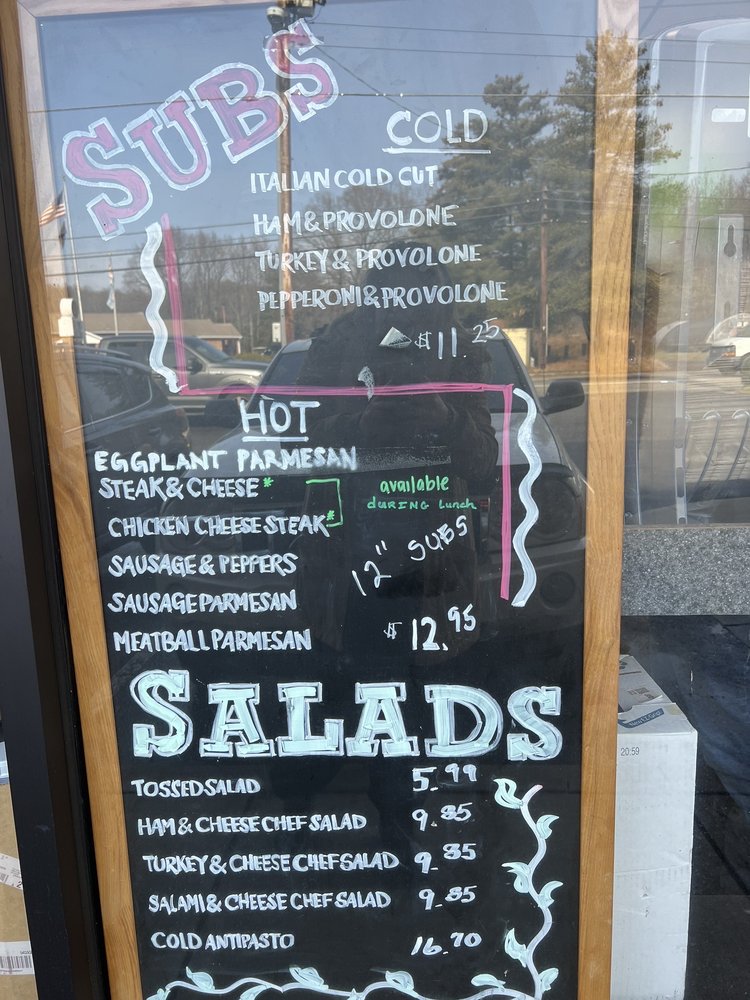 SUBS
COLD
ITALIAN COLD CUT
HAM & PROVOLONE
TURKEY & PROVOLONE
PEPPERONI & PROVOLONE
$11.25
HOT
EGGPLANT PARMESAN
STEAK & CHEESE*
available
DURING Lunch
CHICKEN CHEESE STEAK*
SAUSAGE & PEPPERS
12" SUBS
SAUSAGE PARMESAN
MEATBALL PARMESAN $12.95
SALADS
TOSSED SALAD 5.99
HAM & CHEESE CHEF SALAD 9.85
TURKEY & CHEESE CHEF SALAD 9.85
SALAMI & CHEESE CHEF SALAD 9.85
COLD ANTIPASTO 16.70
20:59